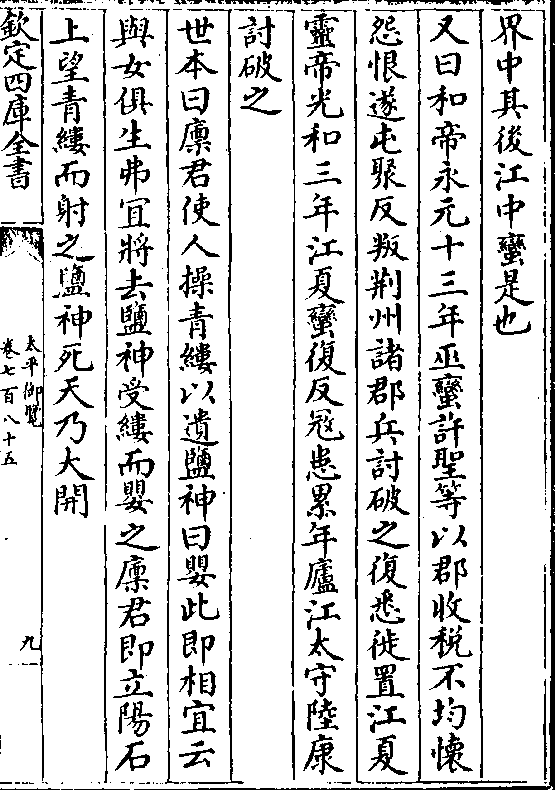 界中其後江中蠻是也
又曰和帝永元十三年巫蠻許聖等以郡收税不均懐
怨恨遂屯聚反叛荆州諸郡兵討破之復悉徙置江夏
靈帝光和三年江夏蠻復反冦患累年廬江太守陸康
討破之
世本曰廪君使人操青縷以遺鹽神曰嬰此即相宜云
與女俱生弗冝將去鹽神受縷而嬰之廪君即立陽石
上望青縷而射之鹽神死天乃大開
欽定四庫全書
太平御覽
卷七百八十五
九